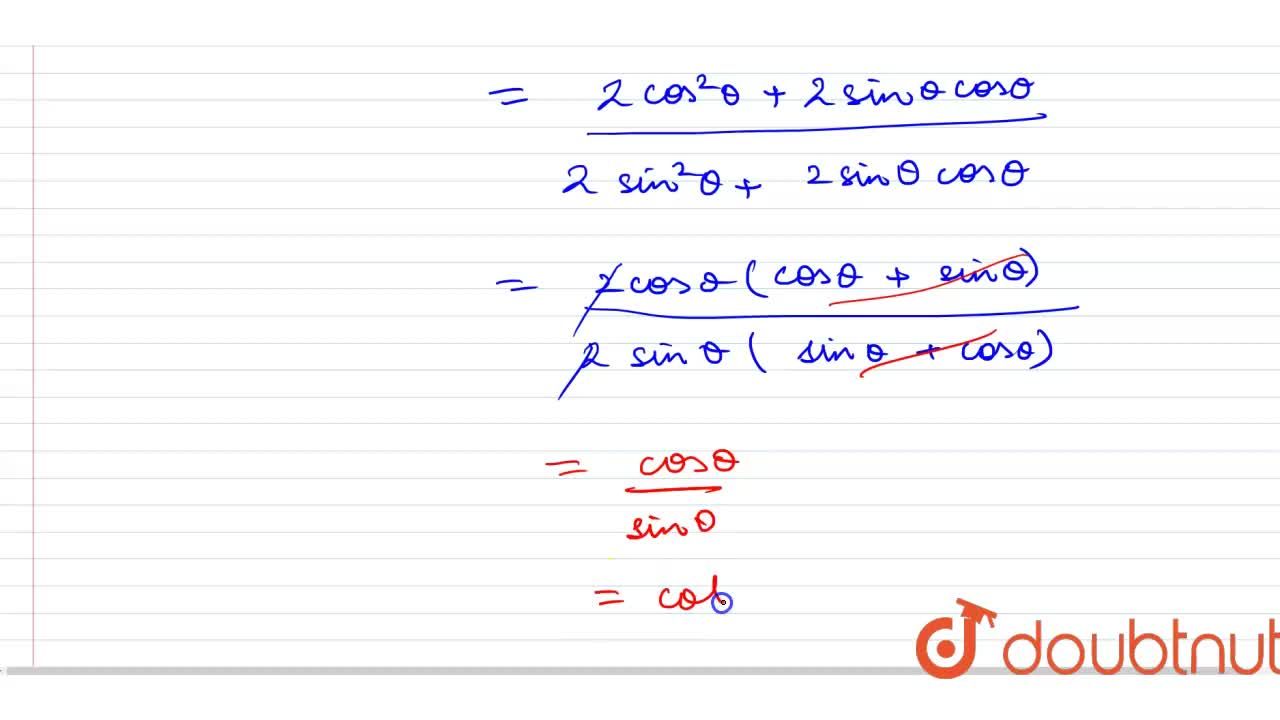 = 2 cos²θ + 2 sin θ cosθ
2 sin²θ + 2 sin θ cos θ
= 2 cos θ ( cos θ + sin θ)
2 sin θ ( sin θ + cosθ)
= cosθ
sin θ
= cot
doubtnut